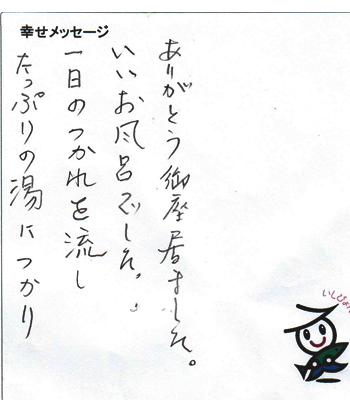 幸せメッセージ
たっぷりの湯につかり
一日のつかれを流し
いいお風呂でした。
ありがとう御座居ました。